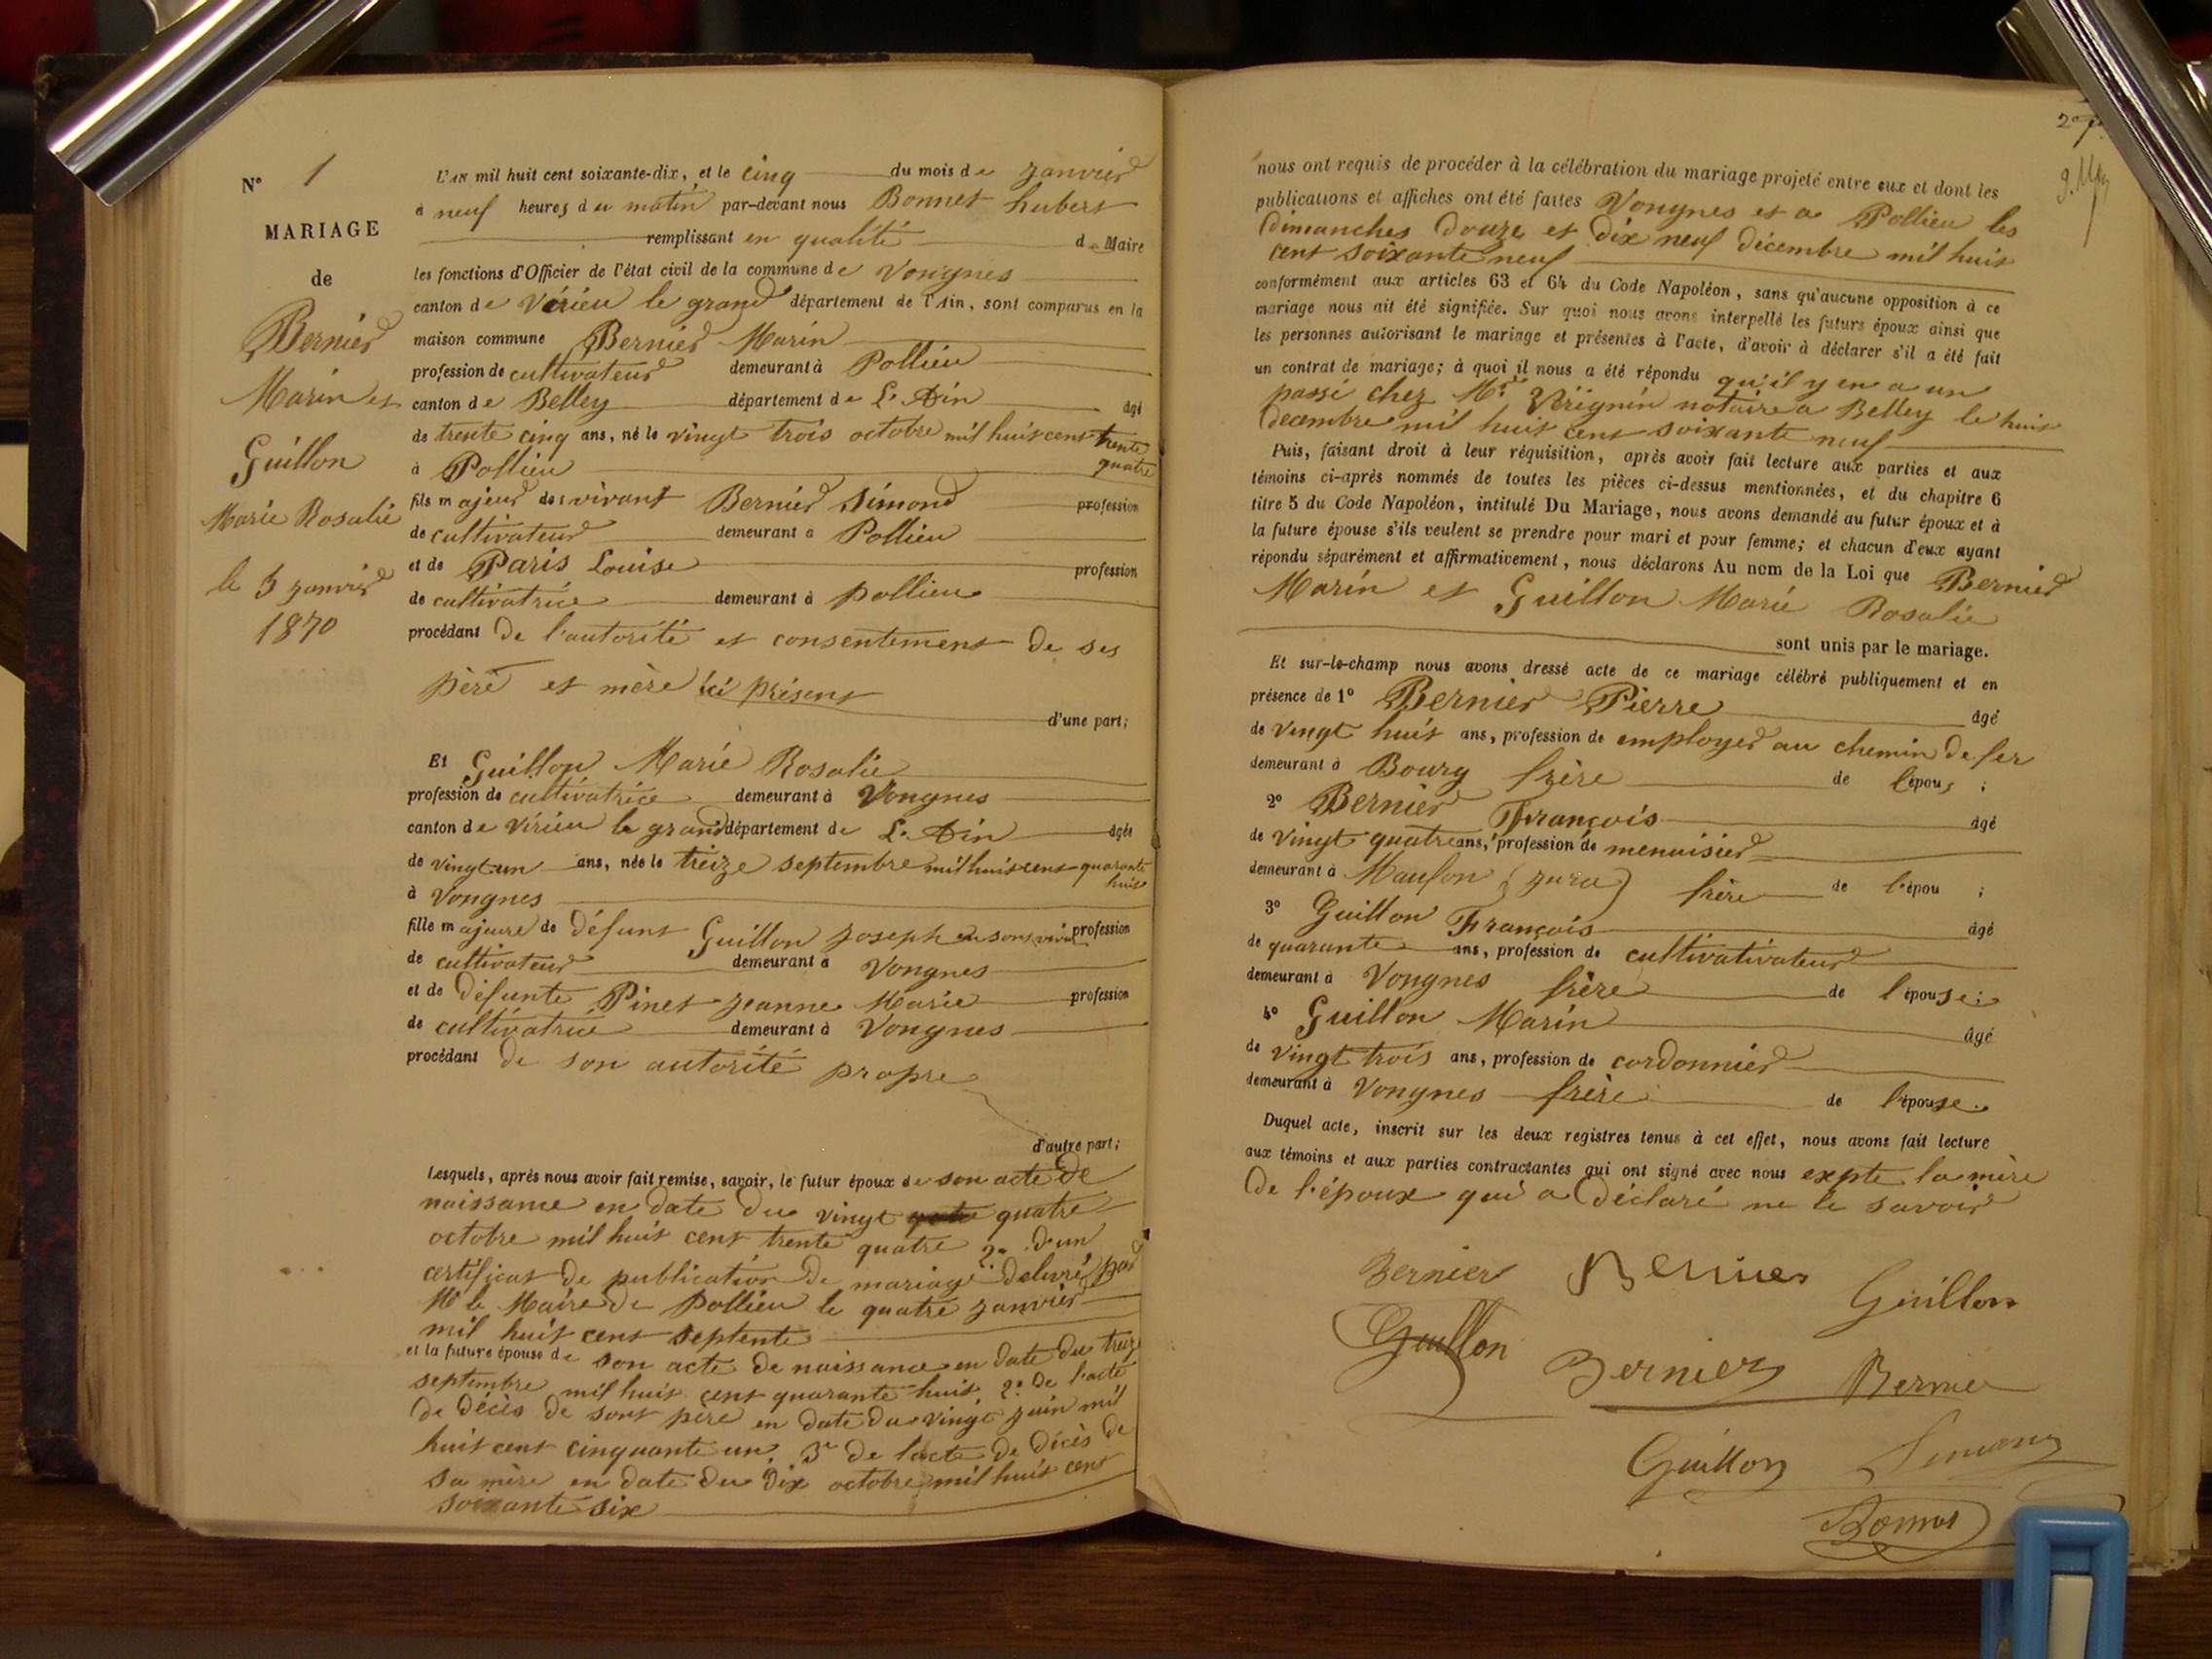 N° 1
MARIAGE
de
Bernier
Marin et
Guillon
Marie Rosalie
le 5 janvier
1870
L'an mil huit cent soixante-dix, et le cinq du mois de janvier
à neuf heures du matin par-devant nous Bonnet hubert
remplissant en qualité de Maire
les fonctions d'Officier de l'état civil de la commune de Vongnes
canton de Virieu le grand département de l'Ain, sont comparus en la
maison commune Bernier Marin
profession de cultivateur demeurant à Pollieu
canton de Belley département de L'Ain âgé
de trente cinq ans, né le vingt trois octobre mil huit cent trente
quatre
à Pollieu
fils majeur des vivant Bernier Simond profession
de cultivateur demeurant à Pollieu
et de Paris Louise profession
de cultivatrice demeurant à pollieu
procédant de l'autorité et consentement de ses
père et mère ici présent
d'une part;
Et Guillon Marie Rosalie
profession de cultivatrice demeurant à Vongnes
canton de virieu le grand département de L'Ain âgée
de vingt un ans, née le treize septembre mil huit cent quarante
huit
à Vongnes
fille majeure de défunt Guillon joseph en son vivant profession
de cultivateur demeurant à Vongnes
et de défunte Pinet jeanne Marie profession
de cultivatrice demeurant à Vongnes
procédant de son autorité propre
d'autre part;
Lesquels, après nous avoir fait remise, savoir, le futur époux de son acte de
naissance en date du vingt quatre
octobre mil huit cent trente quatre 2° d'un
certificat de publication de mariage delivré par
Mr le Maire de Pollieu le quatre janvier
mil huit cent septente
et la future épouse de son acte de naissance en date du treize
septembre mil huit cent quarante huit 2° de l'acte
de décès de sont père en date du vingt juin mil
huit cent cinquante un, 3° de lacte de décès de
sa mère en date du dix octobre mil huit cent
soixante six
nous ont requis de procéder à la célébration du mariage projeté entre eux et dont les
publications et affiches ont été faites Vongnes et a Pollieu les
dimanches douze et dix neuf décembre mil huit
cent soixante neuf
conformément aux articles 63 et 64 du Code Napoléon, sans qu'aucune opposition à ce
mariage nous ait été signifiée. Sur quoi nous avons interpellé les futurs époux ainsi que
les personnes autorisant le mariage et présentes à l'acte, d'avoir à déclarer s'il a été fait
un contrat de mariage; à quoi il nous a été répondu qu'il y en a un
passé chez Mr Vérignin notaire a Belley le huit
decembre mil huit cent soixante neuf
Puis, faisant droit à leur réquisition, après avoir fait lecture aux parties et aux
témoins ci-après nommés de toutes les pièces ci-dessus mentionnées, et du chapitre 6
titre 5 du Code Napoléon, intitulé Du Mariage, nous avons demandé au futur époux et à
la future épouse s'ils veulent se prendre pour mari et pour femme; et chacun d'eux ayant
répondu séparément et affirmativement, nous déclarons Au nom de la Loi que Bernier
Marin et Guillon Marie Rosalie
sont unis par le mariage.
Et sur-le-champ nous avons dressé acte de ce mariage célébré publiquement et en
présence de 1° Bernier Pierre âgé
de vingt huit ans, profession de employer au chemin de fer
demeurant à Bourg frère de l'épous;
2° Bernier François âgé
de vingt quatre ans, profession de menuisier
demeurant à Maufon (jura) frère de l'épou;
3° Guillon François âgé
de quarante ans, profession de cultivativateur
demeurant à Vongnes frère de l'épouse;
4° Guillon Marin âgé
de vingt trois ans, profession de cordonnier
demeurant à Vongnes frère de l'épouse.
Duquel acte, inscrit sur les deux registres tenus à cet effet, nous avons fait lecture
aux témoins et aux parties contractantes qui ont signé avec nous expte la mère
de l'époux qui a déclaré ne le savoir
Bernier Bernier Guillon
Guillon Bernier Bernier
Guillon Simond
Bonnet